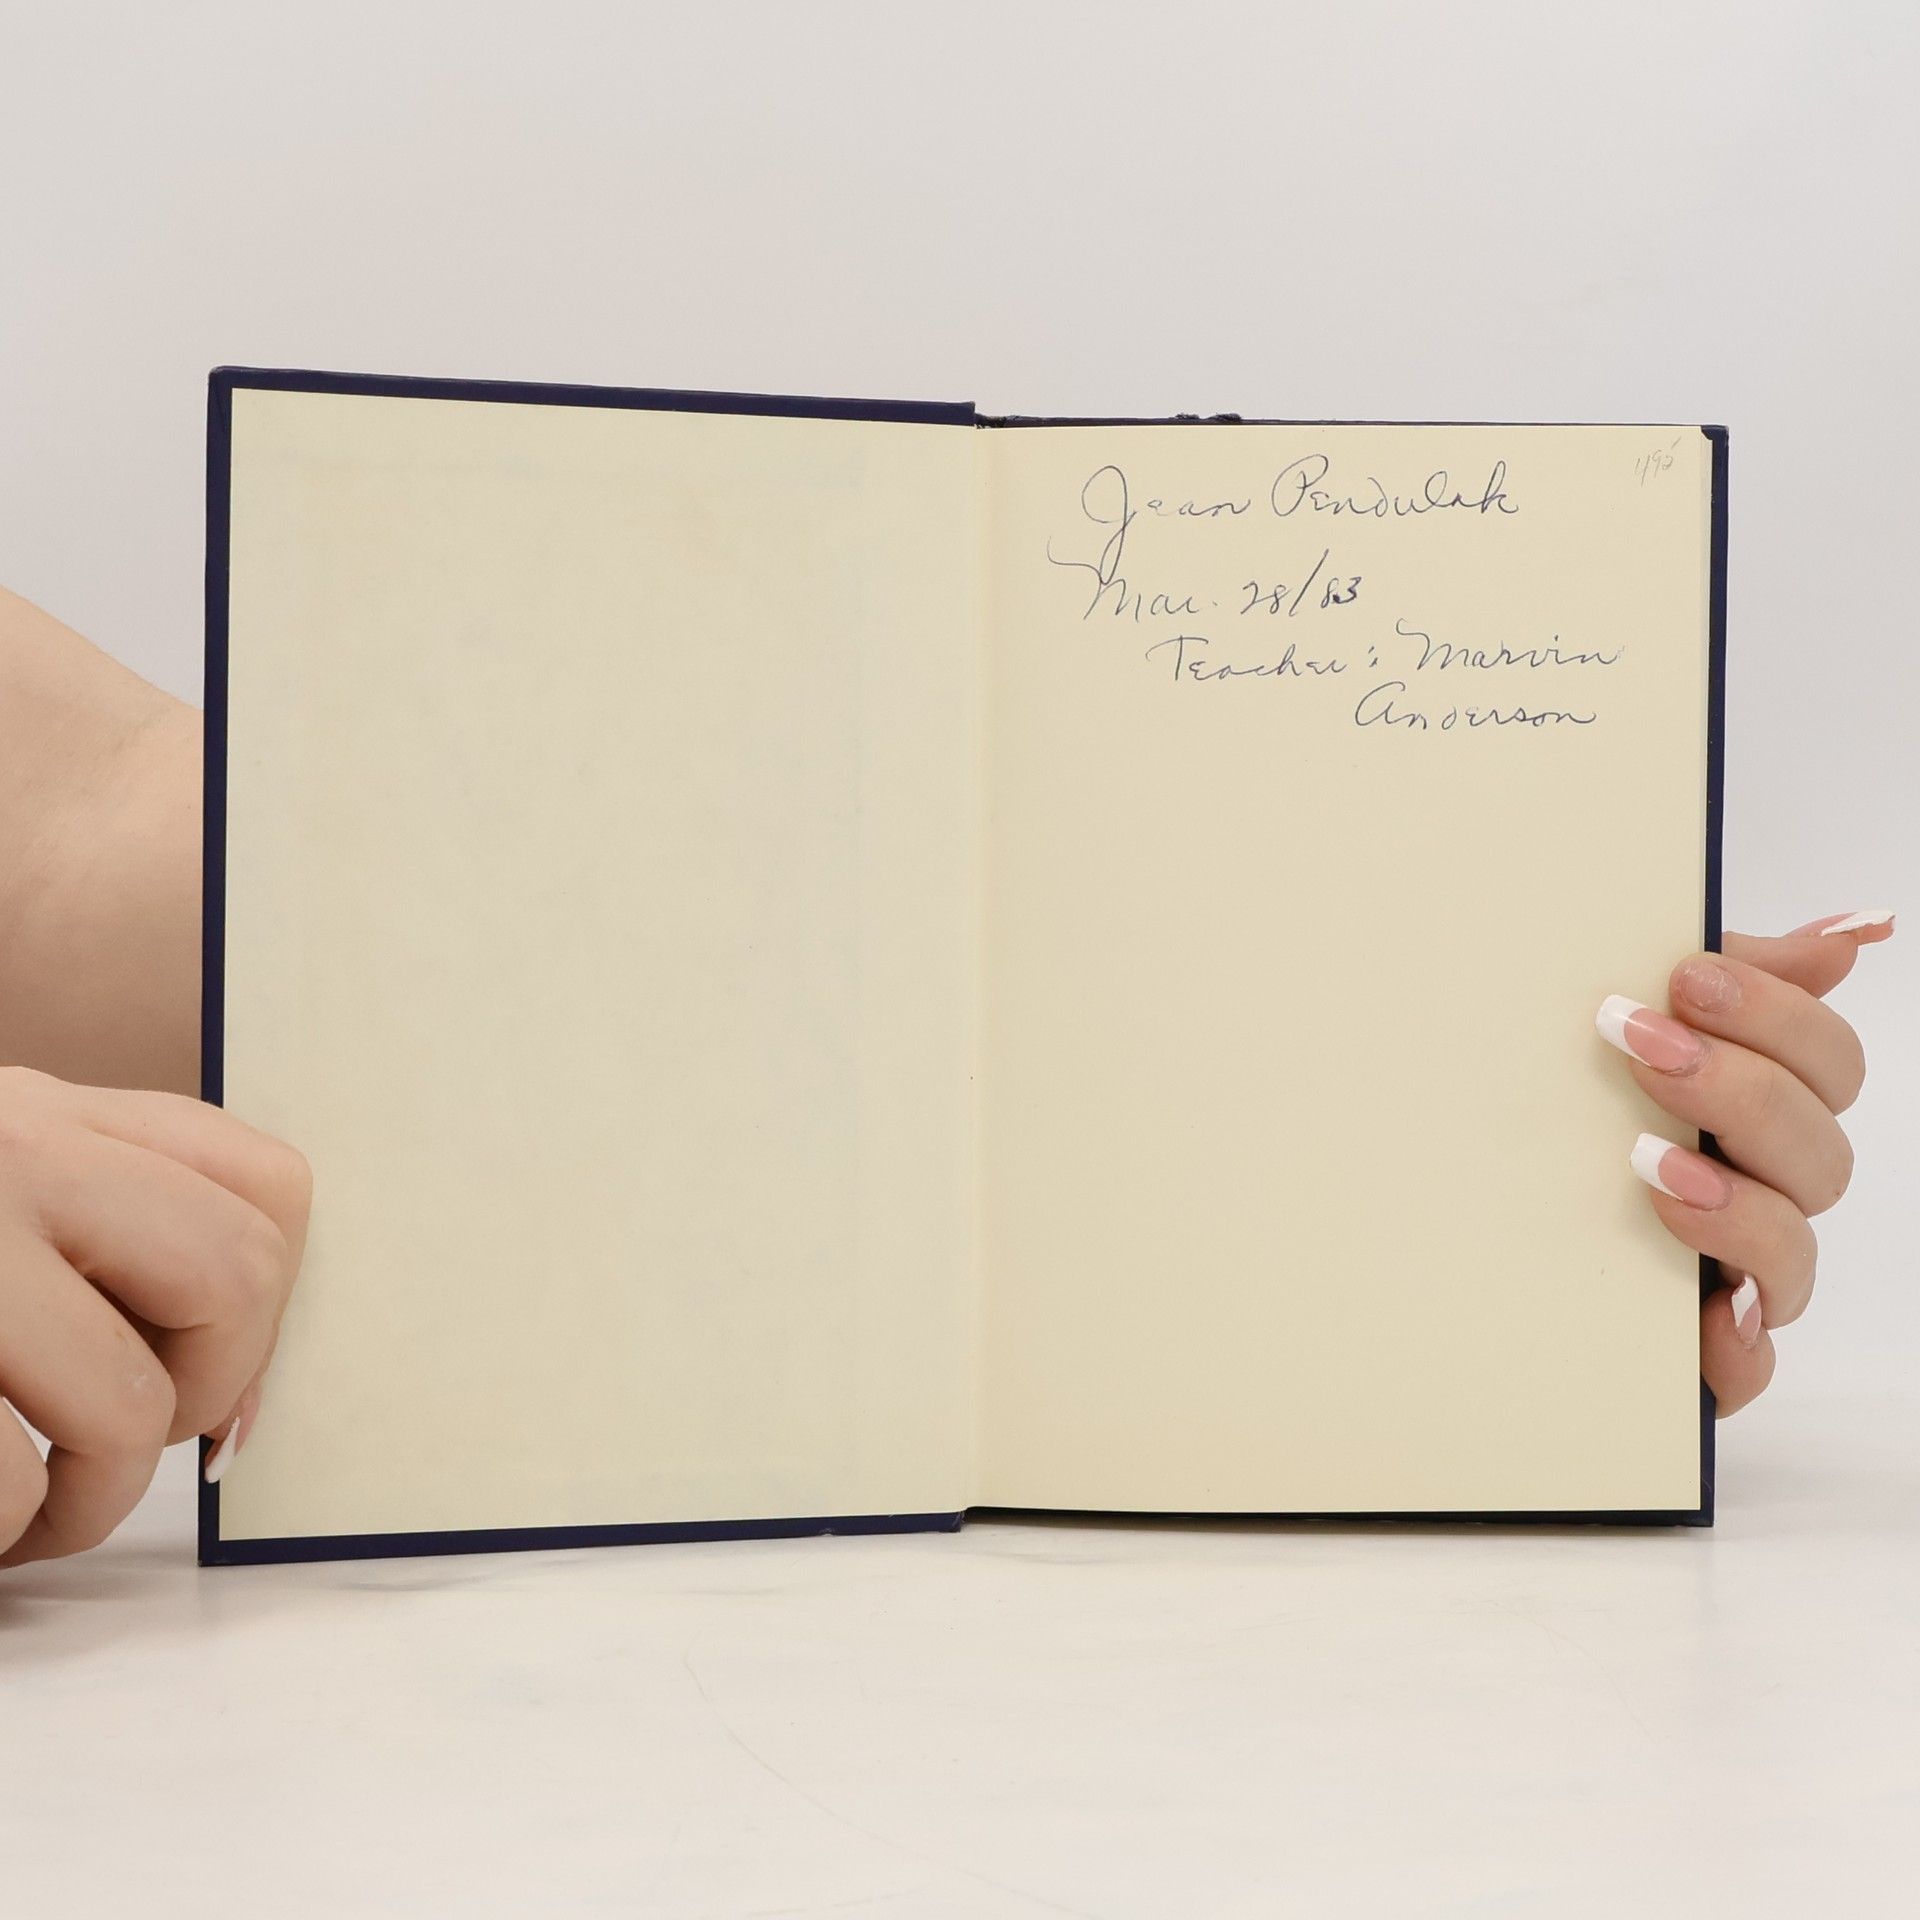 Jean Pendulak
Mar. 28/83
Teacher: Marvin
Anderson
495